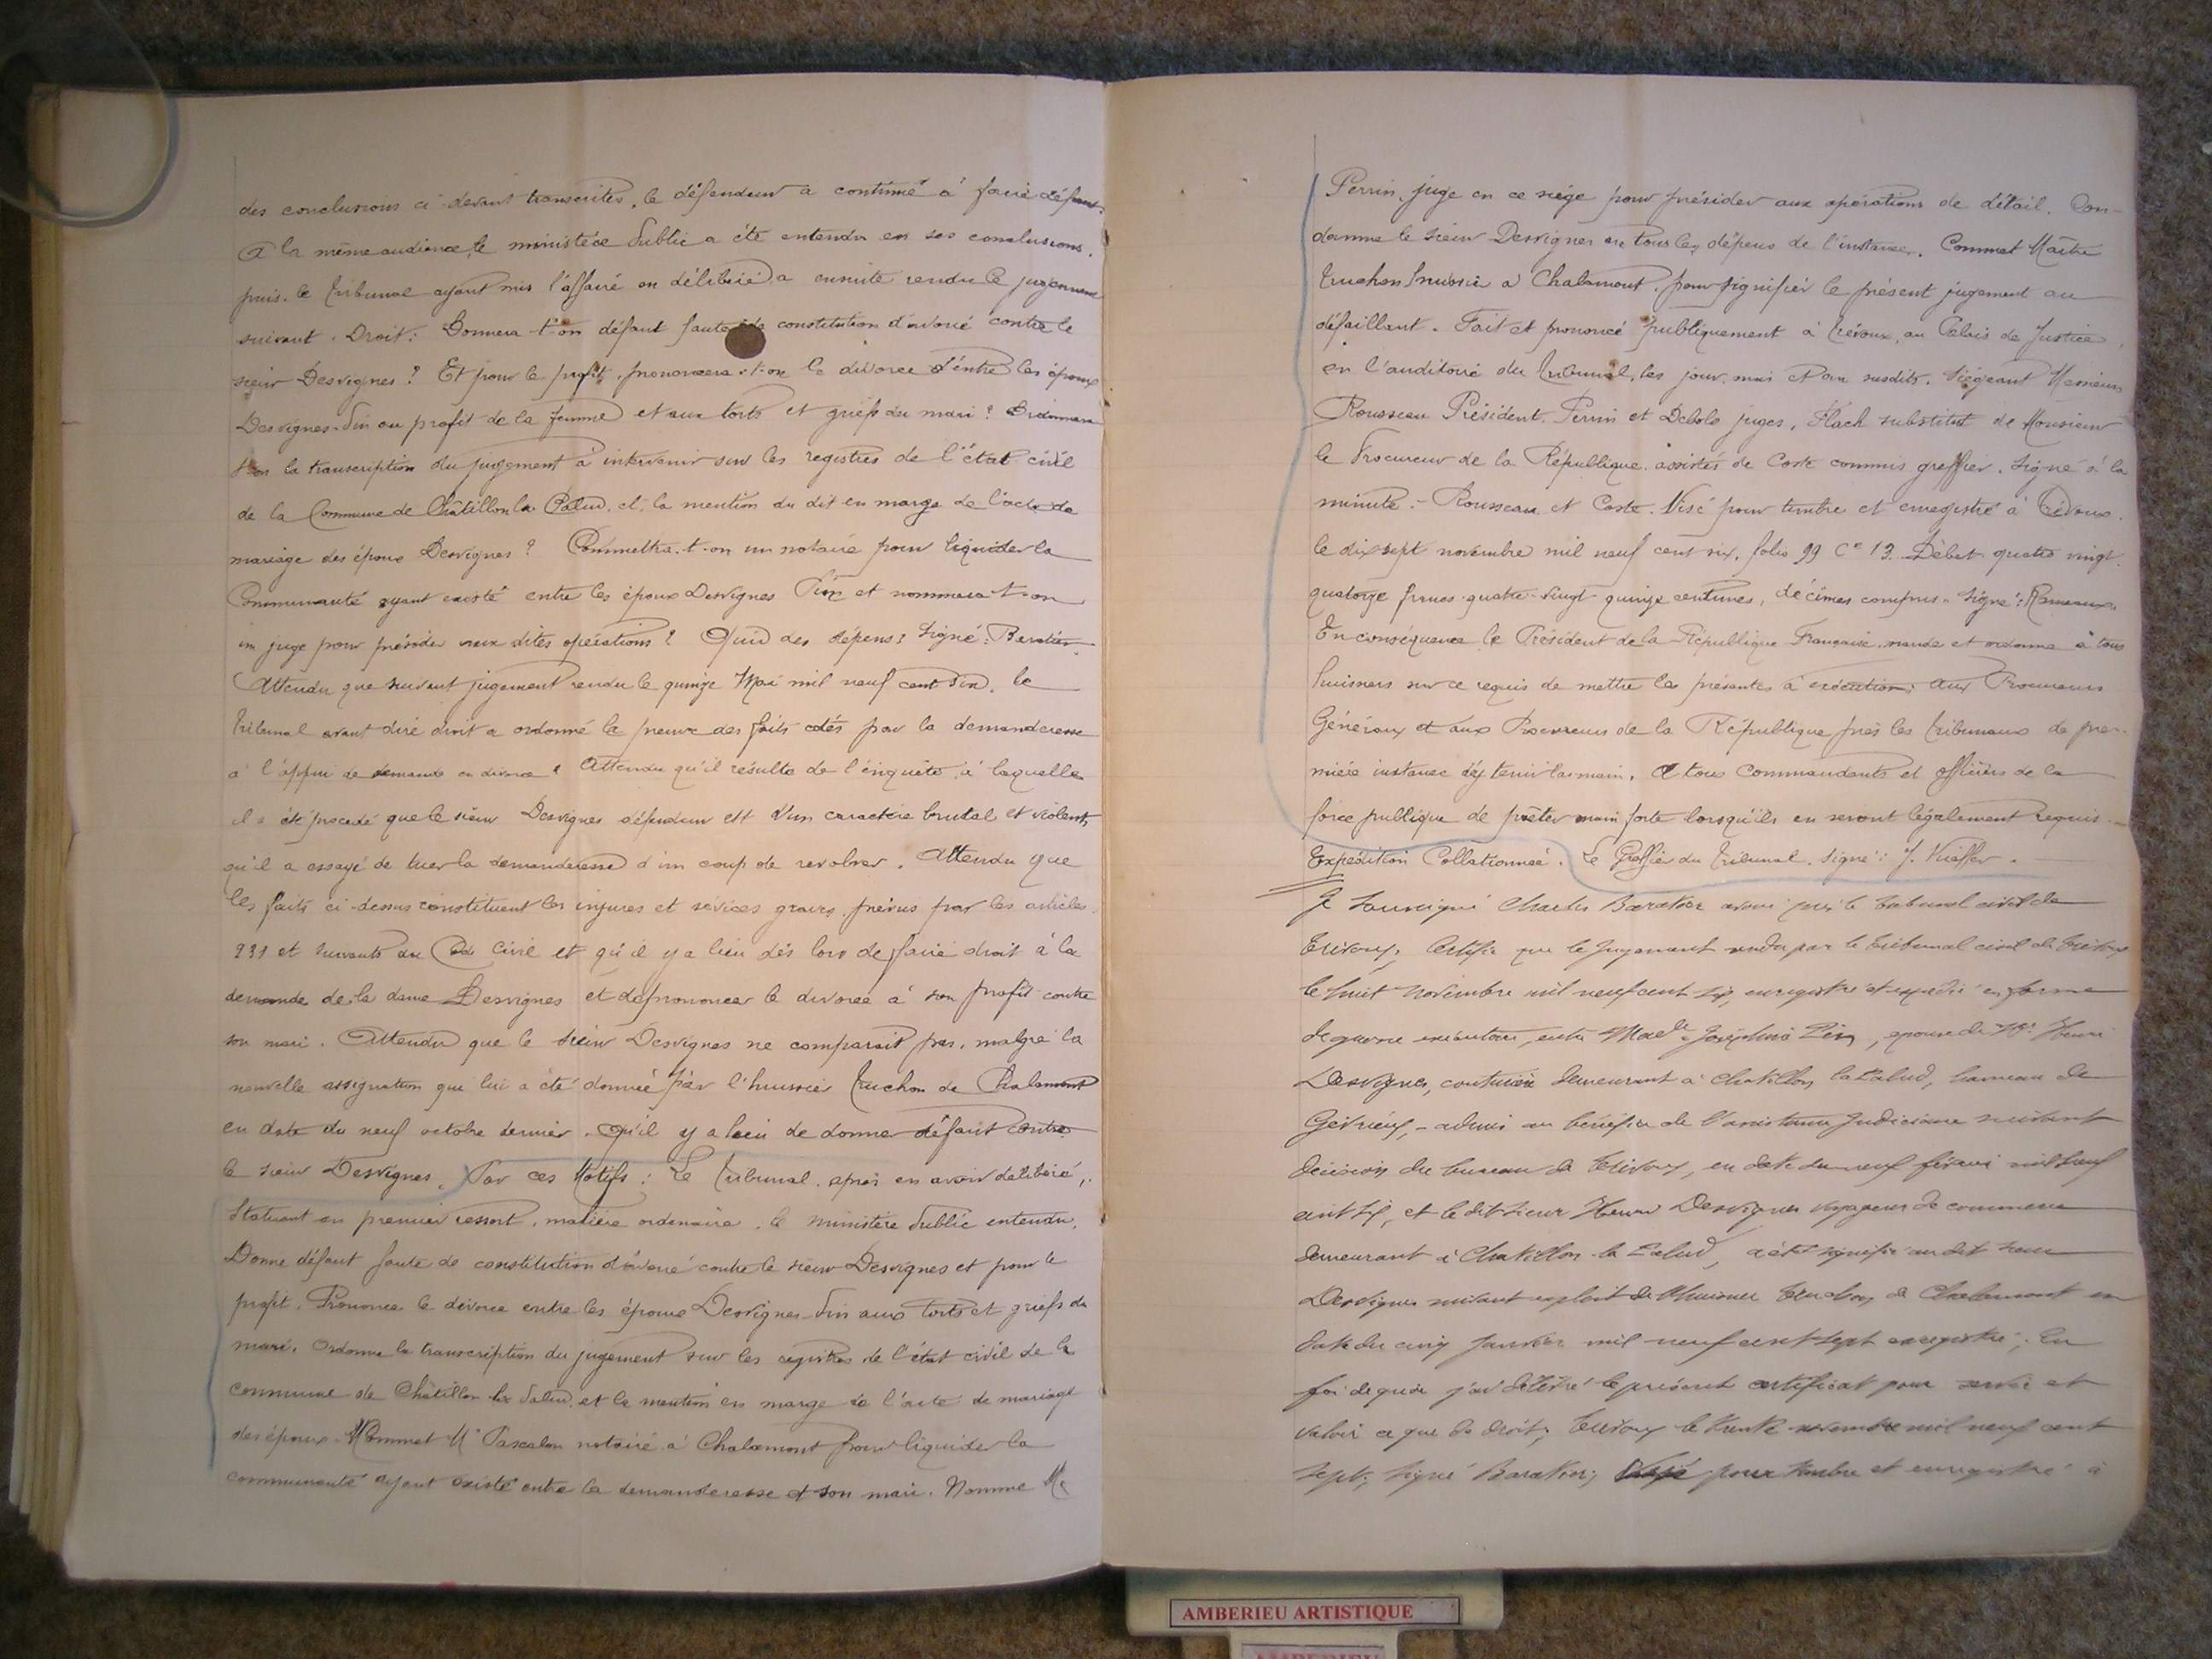 des conclusions ci-devant transcrites, le défendeur a continué à faire défaut.
A la même audience, le ministère Public a été entendu en ses conclusions,
puis le tribunal ayant mis l'affaire en délibéré a ensuite rendu le jugement
suivant. Droit: Donnera-t-on défaut faute de constitution d'avoué contre le
sieur Desvignes? Et pour le profit, prononcera-t-on le divorce d'entre les époux
Desvignes-Pin au profit de la femme et aux torts et griefs du mari? Ordonnera
t-on la transcription du jugement à intervenir sur les registres de l'état civil
de la Commune de Châtillon la Palud, et la mention du dit en marge de l'acte de
mariage des époux Desvignes? Commettra-t-on un notaire pour liquider la
Communauté ayant existé entre les époux Desvignes Pin et nommera-t-on
un juge pour présider aux dites opérations? Quid des dépens? Signé: Baratier.
Attendu que suivant jugement rendu le quinze Mai mil neuf cent six, le
tribunal avant dire droit a ordonné la preuve des faits cotés par la demanderesse
à l'appui de demande en divorce. Attendu qu'il résulte de l'enquête à laquelle
il a été procédé que le sieur Desvignes défendeur est d'un caractère brutal et violent,
qu'il a essayé de tuer la demanderesse d'un coup de revolver. Attendu que
les faits ci-dessus constituent les injures et sévices graves prévus par les articles
231 et suivants du Code Civil et qu'il y a lieu dès lors de faire droit à la
demande de la dame Desvignes et de prononcer le divorce à son profit contre
son mari. Attendu que le sieur Desvignes ne comparait pas, malgré la
nouvelle assignation que lui a été donnée par l'huissier Truchon de Chalamont
en date du neuf octobre dernier. Qu'il y a lieu de donner défaut contre
le sieur Desvignes. Par ces Motifs: Le Tribunal, après en avoir délibéré,
Statuant en premier ressort, matière ordinaire, le Ministère Public entendu,
Donne défaut faute de constitution d'avoué contre le sieur Desvignes et pour le
profit, Prononce le divorce entre les époux Desvignes-Pin aux torts et griefs du
mari. Ordonne la transcription du jugement sur les registres de l'état civil de la
commune de Châtillon la Palud, et la mention en marge de l'acte de mariage
des époux. Commet Me Pascalon notaire à Chalamont pour liquider la
communauté ayant existé entre la demanderesse et son mari. Nomme Mr
Perrin, juge en ce siège pour présider aux opérations de détail. Con-
damne le sieur Desvignes en tous les dépens de l'instance. Commet Maître
Truchon huissier à Chalamont, pour signifier le présent jugement au
défaillant. Fait et prononcé publiquement à Trévoux, au Palais de Justice,
en l'auditoire du Tribunal, les jour, mois et an susdits. Siégeant Messieurs
Rousseau Président, Perrin et Debolo juges, Flach substitut de Monsieur
le Procureur de la République, assistés de Coste commis greffier. Signé à la
minute: Rousseau et Coste. Visé pour timbre et enregistré à Trévoux
le dix sept novembre mil neuf cent six, folio 99 Ce 13. Débet quatre vingt
quatorze francs quatre-vingt-quinze centimes, décimes compris. Signé:
En conséquence le Président de la République Française, mande et ordonne à tous
huissiers sur ce requis de mettre les présentes à exécution; aux Procureurs
Généraux et aux Procureurs de la République près les tribunaux de pre-
mière instance d'y tenir la main, A tous commandants et officiers de la
force publique de prêter main forte lorsqu'ils en seront légalement requis.
Expédition Collationnée. Le Greffier du Tribunal. Signé: J. Kieffer.
Je soussigné Charles Baratier avoué près le tribunal civil de
Trévoux, Certifie que le jugement rendu par le tribunal civil de Trévoux
le huit novembre mil neuf cent six, enregistré et expédié en forme
de grosse exécutoire, entre Made Joséphine Pin, épouse de Mr Henri
Desvignes, couturière demeurant à Chatillon la Palud, hameau de
Gévrieux, admise au bénéfice de l'assistance Judiciaire suivant
décision du bureau de Trévoux, en date du neuf février mil neuf
cent six, et le dit sieur Henri Desvignes voyageur de commerce
demeurant à Chatillon la Palud, a été signifié au dit sieur
Desvignes suivant exploit de l'huissier Truchon de Chalamont en
date du cinq janvier mil neuf cent sept enregistré; En
foi de quoi j'ai délivré le présent certificat pour servir et
valoir ce que de droit; Trévoux le trente novembre mil neuf cent
sept; Signé Baratier; Visé pour timbre et enregistré à
AMBERIEU ARTISTIQUE
AMBERIEU